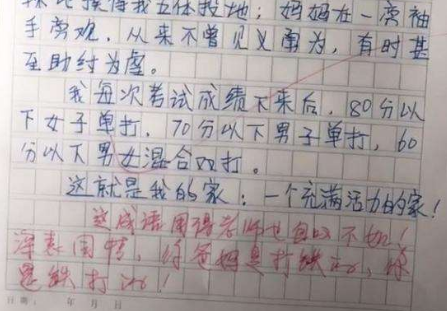 得我五体投地；妈妈在一旁袖
手旁观，从来不曾见义勇为，有时甚
至助纣为虐。
我每次考试成绩下来后，80分以
下女子单打，70分以下男子单打，60
分以下男女混合双打。
这就是我的家：一个充满活力的家！
这成语用得老师也自叹不如！
深表同情，你爸妈是打铁的，你
是铁打的！
日期： 年 月 日